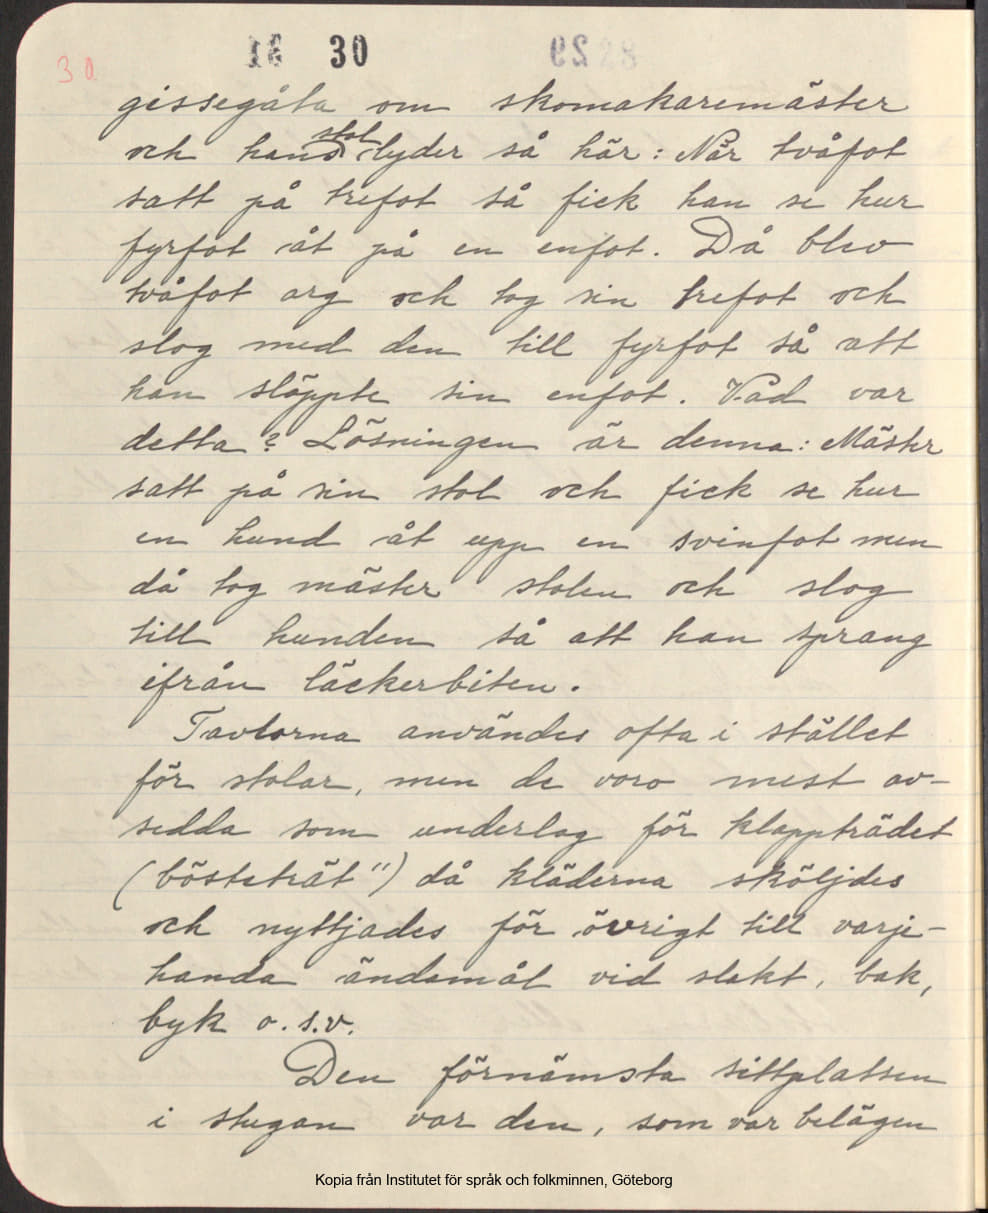 30
30
gissegåta om skomakaremäster
och hans stol lyder så här: När tvåfot
satt på trefot så fick han se hur
fyrfot åt på en enfot. Då blev
tvåfot arg och tog sin trefot och
slog med den till fyrfot så att
han släppte sin enfot. Vad var
detta? Lösningen är denna: Mäster
satt på sin stol och fick se hur
en hund åt upp en svinfot men
då tog mäster stolen och slog
till hunden så att han sprang
ifrån läckerbiten.
Tavlorna användes ofta i stället
för stolar, men de voro mest av-
sedda som underlag för klappträdet
(bösteträt") då kläderna sköljdes
och nyttjades för övrigt till varje-
handa ändamål vid slakt, bak,
byk o.s.v.
Den förnämsta sittplatsen
i stugan var den, som var belägen
Kopia från Institutet för språk och folkminnen, Göteborg